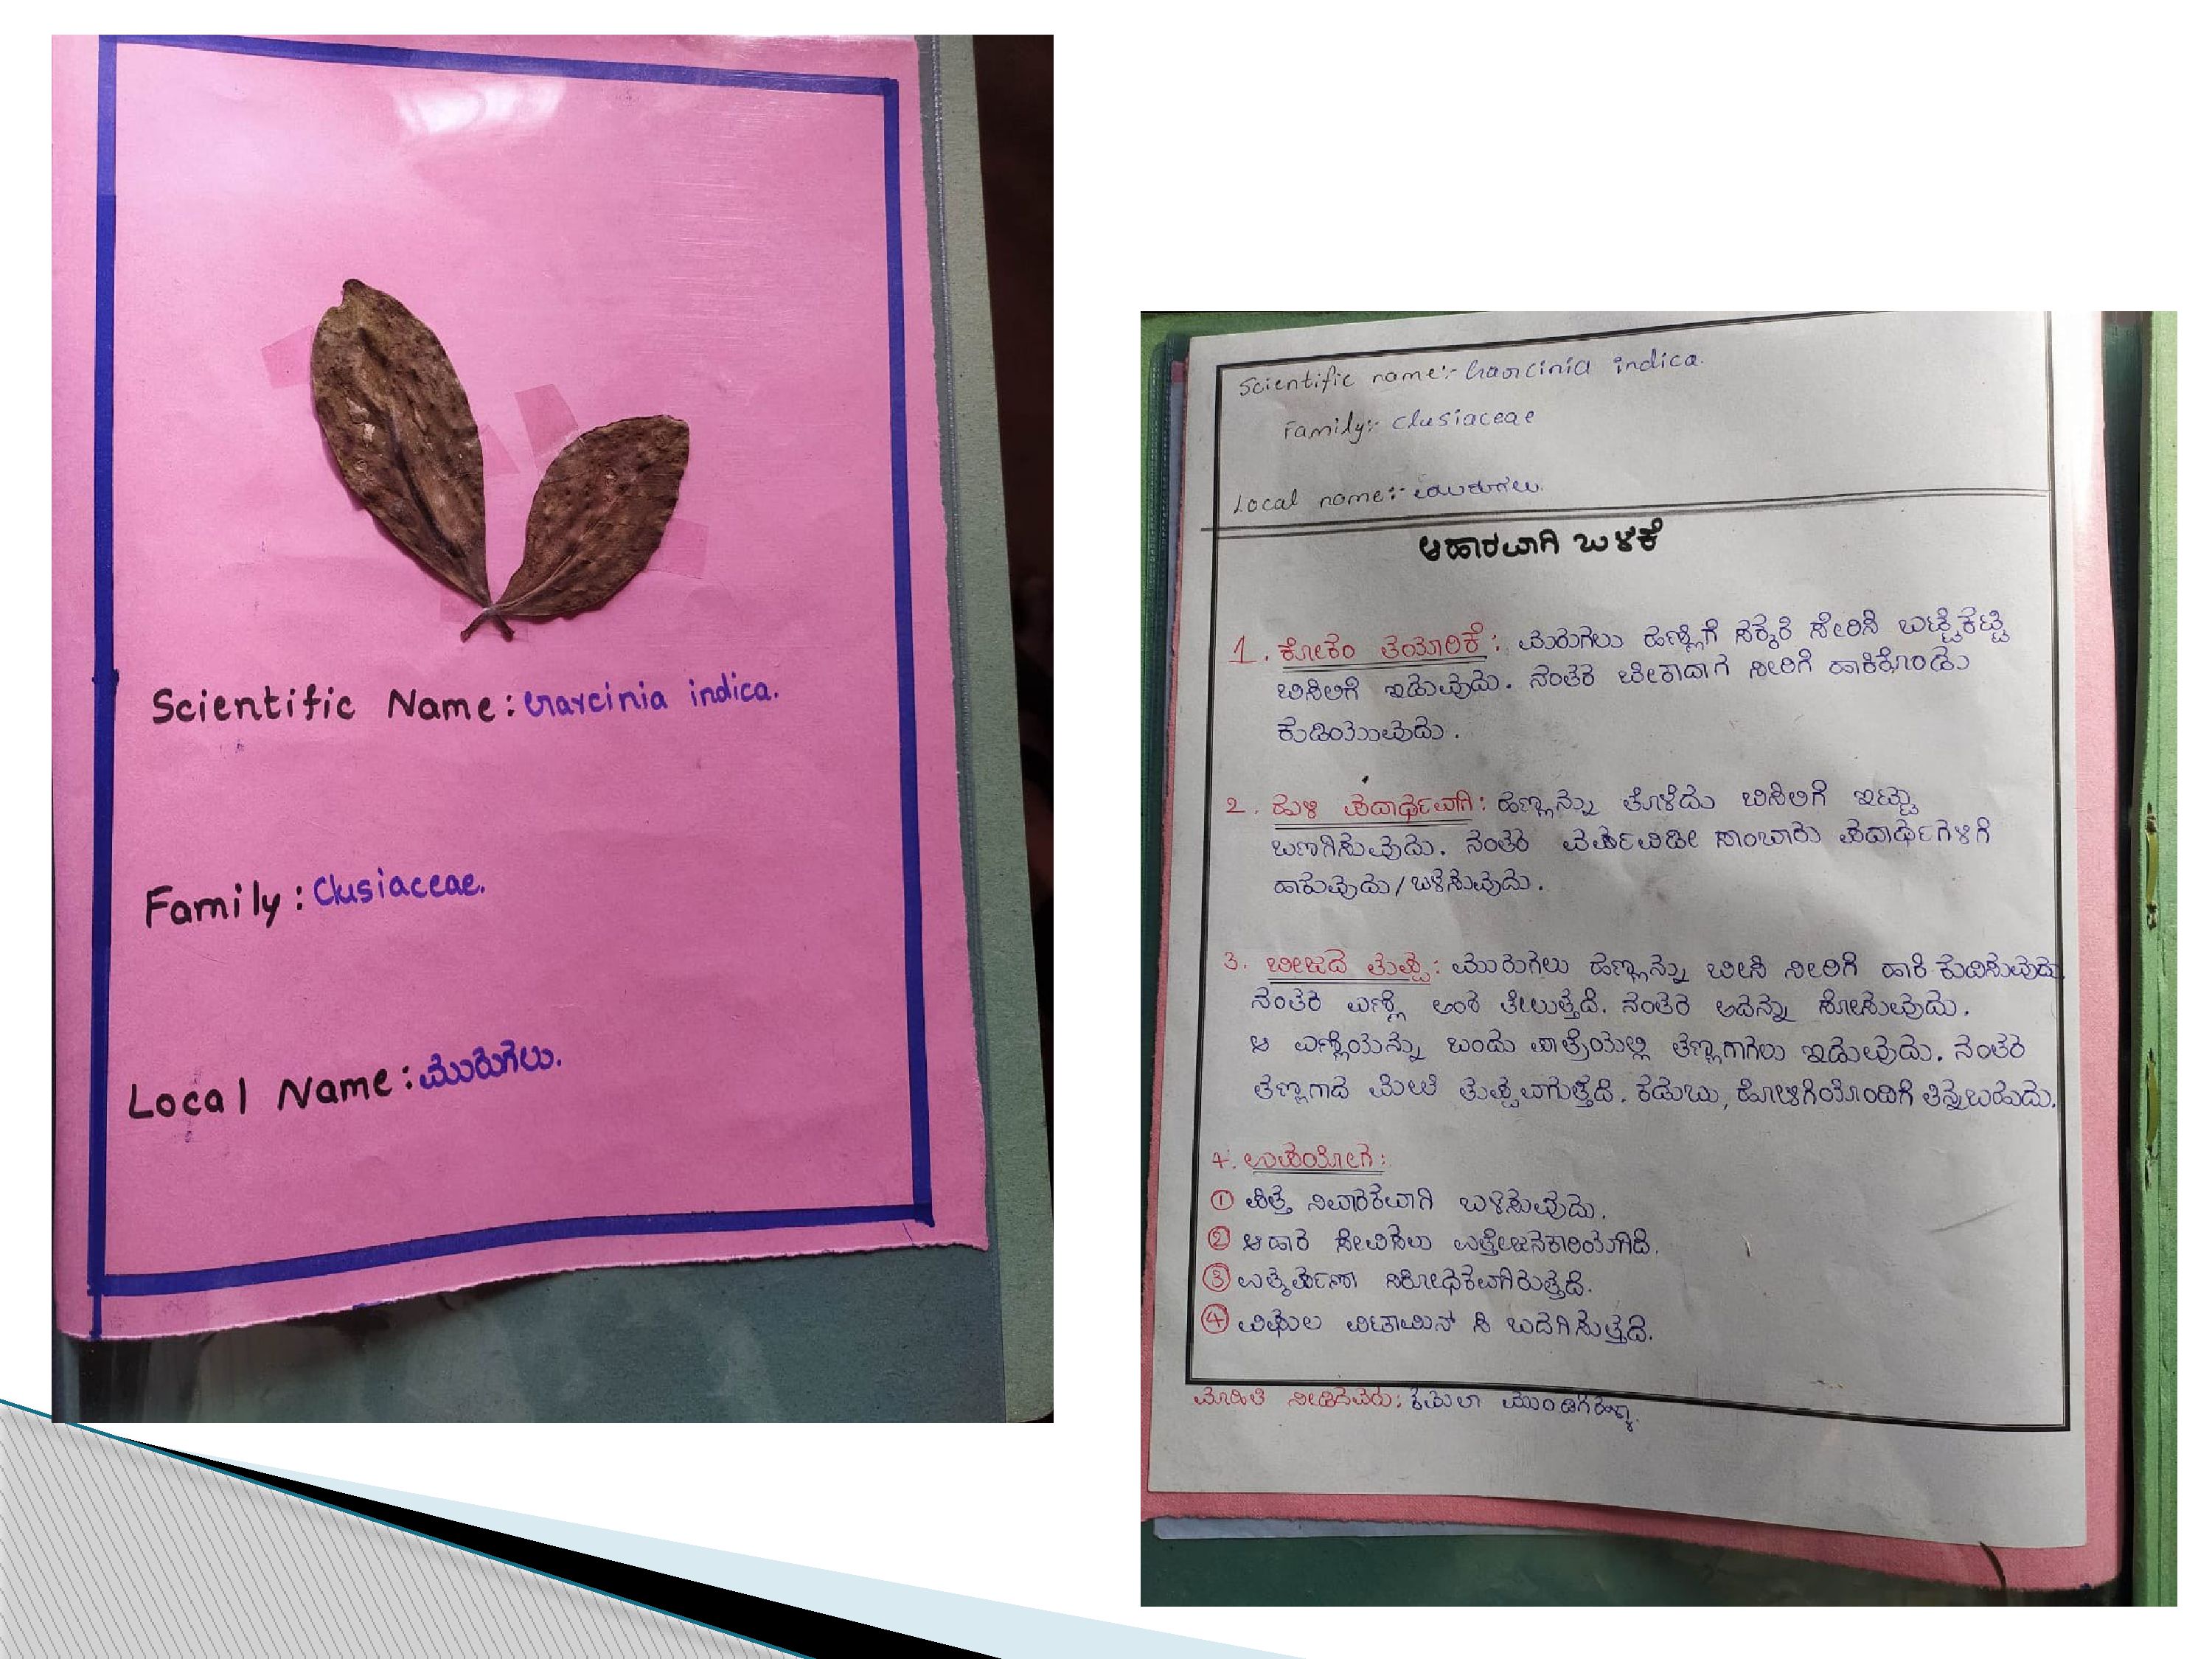 Scientific Name: Garcinia indica.
Family: Clusiaceae.
Local Name: ಮುರುಗಲು.
Scientific name:- Garcinia indica.
Family:- Clusiaceae
Local name:- ಮುರುಗಲು.
ಆಹಾರವಾಗಿ ಬಳಕೆ
1. ಕೋಕಂ ತಯಾರಿಕೆ: ಮುರುಗಲು ಹಣ್ಣಿಗೆ ಸಕ್ಕರೆ ಸೇರಿಸಿ ಬಟ್ಟೆಕಟ್ಟಿ
ಬಿಸಿಲಿಗೆ ಇಡುವುದು. ನಂತರ ಬೇಕಾದಾಗ ನೀರಿಗೆ ಹಾಕಿಕೊಂಡು
ಕುಡಿಯುವುದು.
2. ಹುಳಿ ಪದಾರ್ಥವಾಗಿ: ಹಣ್ಣನ್ನು ತೊಳೆದು ಬಿಸಿಲಿಗೆ ಇಟ್ಟು
ಒಣಗಿಸುವುದು. ನಂತರ ವರ್ಷವಿಡೀ ಸಾಂಬಾರು ಪದಾರ್ಥಗಳಿಗೆ
ಹಾಕುವುದು/ಬಳಸುವುದು.
3. ಬೀಜದ ತುಪ್ಪ: ಮುರುಗಲು ಹಣ್ಣನ್ನು ಬೀಸಿ ನೀರಿಗೆ ಹಾಕಿ ಕುದಿಸುವುದು
ನಂತರ ಎಣ್ಣೆ ಅಂಶ ತೇಲುತ್ತದೆ. ನಂತರ ಅದನ್ನು ಸೋಸುವುದು.
ಆ ಎಣ್ಣೆಯನ್ನು ಒಂದು ಪಾತ್ರೆಯಲ್ಲಿ ತಣ್ಣಗಾಗಲು ಇಡುವುದು. ನಂತರ
ತಣ್ಣಗಾದ ಮೇಲೆ ತುಪ್ಪವಾಗುತ್ತದೆ. ಕಡುಬು, ಹೋಳಿಗೆಯೊಂದಿಗೆ ತಿನ್ನಬಹುದು.
4. ಉಪಯೋಗ:
① ಪಿತ್ತ ನಿವಾರಕವಾಗಿ ಬಳಸುವುದು.
② ಆಹಾರ ಸೇವಿಸಲು ಉತ್ತೇಜನಕಾರಿಯಾಗಿದೆ.
③ ಉತ್ಕರ್ಷಣಾ ನಿರೋಧಕವಾಗಿರುತ್ತದೆ.
④ ವಿಫುಲ ವಿಟಾಮಿನ್ ಸಿ ಒದಗಿಸುತ್ತದೆ.
ಮಾಹಿತಿ ನೀಡಿದವರು: ಕಮಲಾ